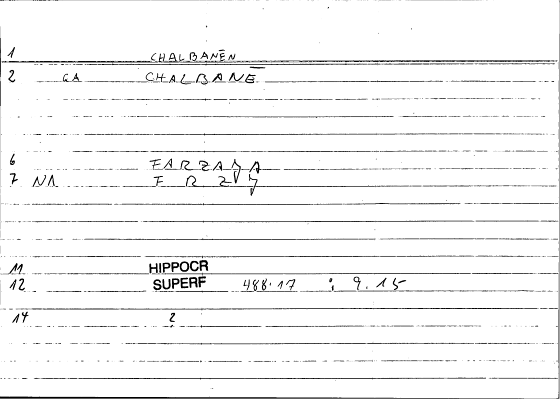 1 CHALBANĒN
2 GA CHALBANĒ
6 FARZAŊA
7 NA FRZŊ
11 HIPPOCR
12 SUPERF 488.17 : 9.15
14 2